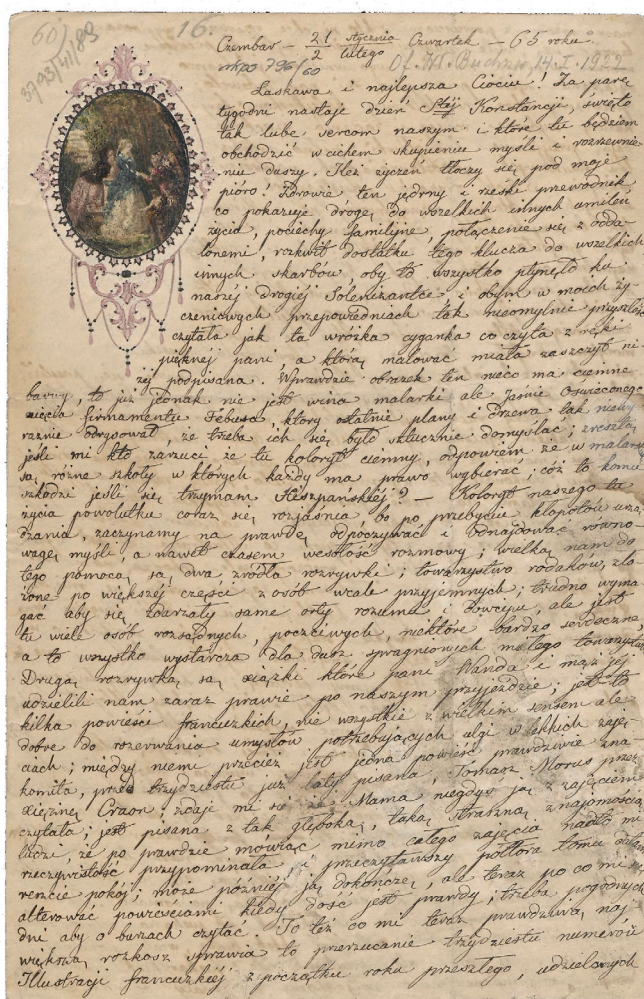 60/
3793/41/89
16.
Czembar – 21/2 stycznia/lutego Czwartek – 65 roku.
nkpo 736/60 Of. Wł. Buchner 14. I. 1922
Łaskawa i najlepsza Ciociu! Za parę
tygodni nastaje dzień Stéj Konstancji, święto
tak lube sercom naszym i które tu będziem
obchodzić w cichem skupieniu myśli i rozrzewnie-
niu duszy. Ileż życzeń tłoczy się pod moje
pióro! Zdrowie ten jędrny i rzeski przewodnik
co pokazuje drogę do wszelkich innych
życia, pociechy familijne, połączenie się z odda-
lonemi, rozkwit dostatku tego klucza do wszelkich
innych skarbów, oby to wszystko płynęło ku
naszéj drogiéj Solenizantce i obym w moich ży-
czeniowych przepowiedniach tak nieomylnie przyszłość
czytała jak ta wróżka cyganka co czyta z ręki
pięknej pani, a którą malować miała zaszczyt ni-
żéj podpisana. Wprawdzie obrazek ten nieco ma ciemne
barwy, to już jednak nie jest wina malarki ale Jaśnie Oświeconego
Xięcia firmamentu Febusa, ktory ostatnie plany i drzewa tak niewy-
raźnie odrysował, że trzeba ich się było sztucznie domyślać; zresztą
jeśli mi kto zarzuci że tu koloryt ciemny, odpowiem że w malarstwie
są różne szkoły w których każdy ma prawo wybierać; cóż to komu
szkodzi jeśli się trzymam Hiszpańskiéj? – Koloryt naszego tu
życia powolutku coraz się rozjaśnia bo po przebyciu kłopotów urzą-
dzania, zaczynamy na prawdę odpoczywać i odnajdować równo-
wagę myśli, a nawet czasem wesołość rozmowy; wielką nam do
tego pomocą są dwa źródła rozrywki; towarzystwo rodaków, zło-
żone po większéj części z osób wcale przyjemnych; trudno wyma-
gać aby się zdarzały same orły rozumu i dowcipu, ale jest
tu wiele osób rozsądnych, poczciwych, niektóre bardzo serdeczne,
a to wszystko wystarcza dla dusz spragnionych miłego towarzystwa.
Drugą rozrywką są xiążki które pani Wanda i mąż jéj
udzielili nam zaraz prawie po naszym przyjeździe; jest to
kilka powieści francuzkich, nie wszystkie z wielkim sensem ale
dobre do rozerwania umysłów potrzebujących ulgi w lekkich zaję-
ciach; między niemi przecież jest jedna powieść prawdziwie zna-
komita, przed trzydziestu już laty pisana, Tomasz Morus przez
xiężnę Craon; zdaje mi się że Mama niegdyś ją z zajęciem
czytała; jest pisana z tak głęboką, taką straszną znajomością
ludzi, że po prawdzie mówiąc mimo całego zajęcia nadto mi
rzeczywistość przypominała i przeczytawszy półtora tomu
rencie pokój; może poźniéj ją dokończę, ale teraz po co mi się
alterować powieściami kiedy dość jest prawdy; trzeba pogodnych
dni aby o burzach czytać. To też co mi teraz prawdziwą naj-
większą rozkosz sprawia to przerzucanie trzydziestu numerów
Illustracji francuzkiéj z początku roku przeszłego, udzielonych